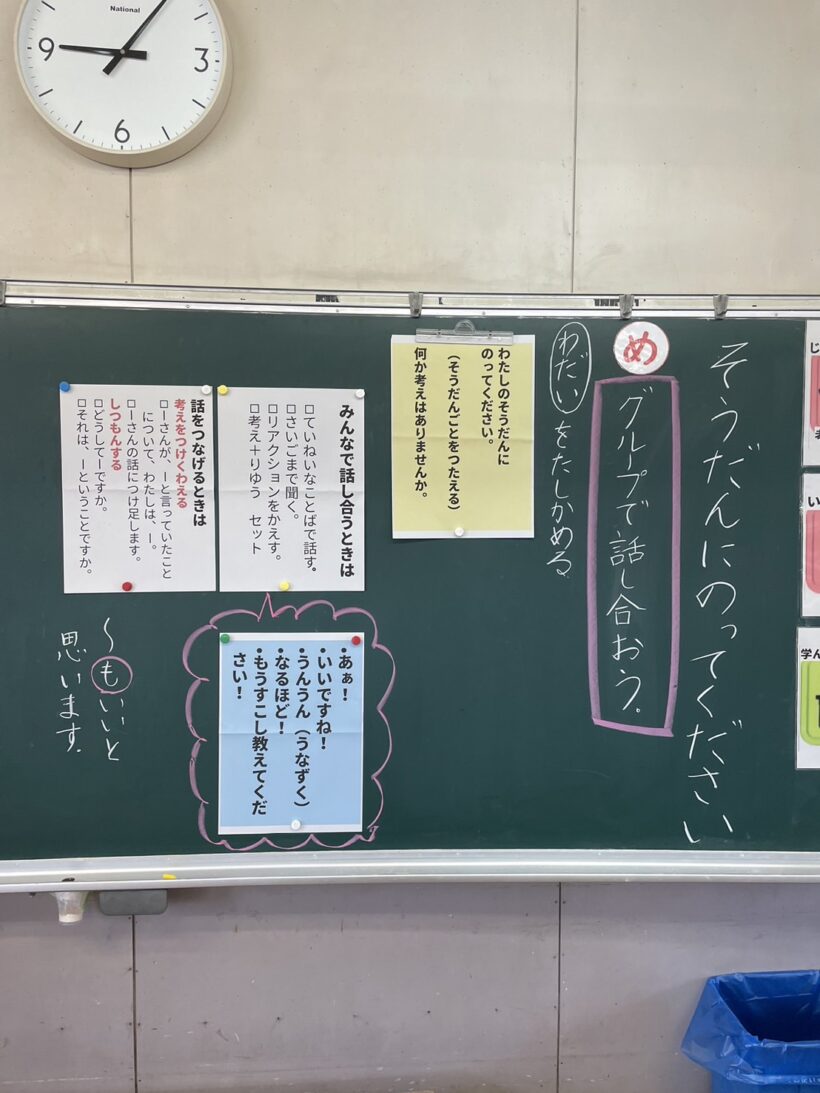 National
9
3
6
そうだんにのってください
め
グループで話し合おう。
わだいをたしかめる
わたしのそうだんに
のってください。
(そうだんごとをつたえる)
何か考えはありませんか。
みんなで話し合うときは
□ていねいなことばで話す。
□さいごまで聞く。
□リアクションをかえす。
□考え+りゆう セット
・あぁ!
・いいですね!
・うんうん(うなずく)
・なるほど!
・もうすこし教えてくだ
さい!
話をつなげるときは
考えをつけくわえる
□ーさんが、ーと言っていたこと
について、わたしは、ー。
□ーさんの話につけ足します。
しつもんする
□どうしてーですか。
□それは、ーということですか。
〜もいいと
思います。
学ん